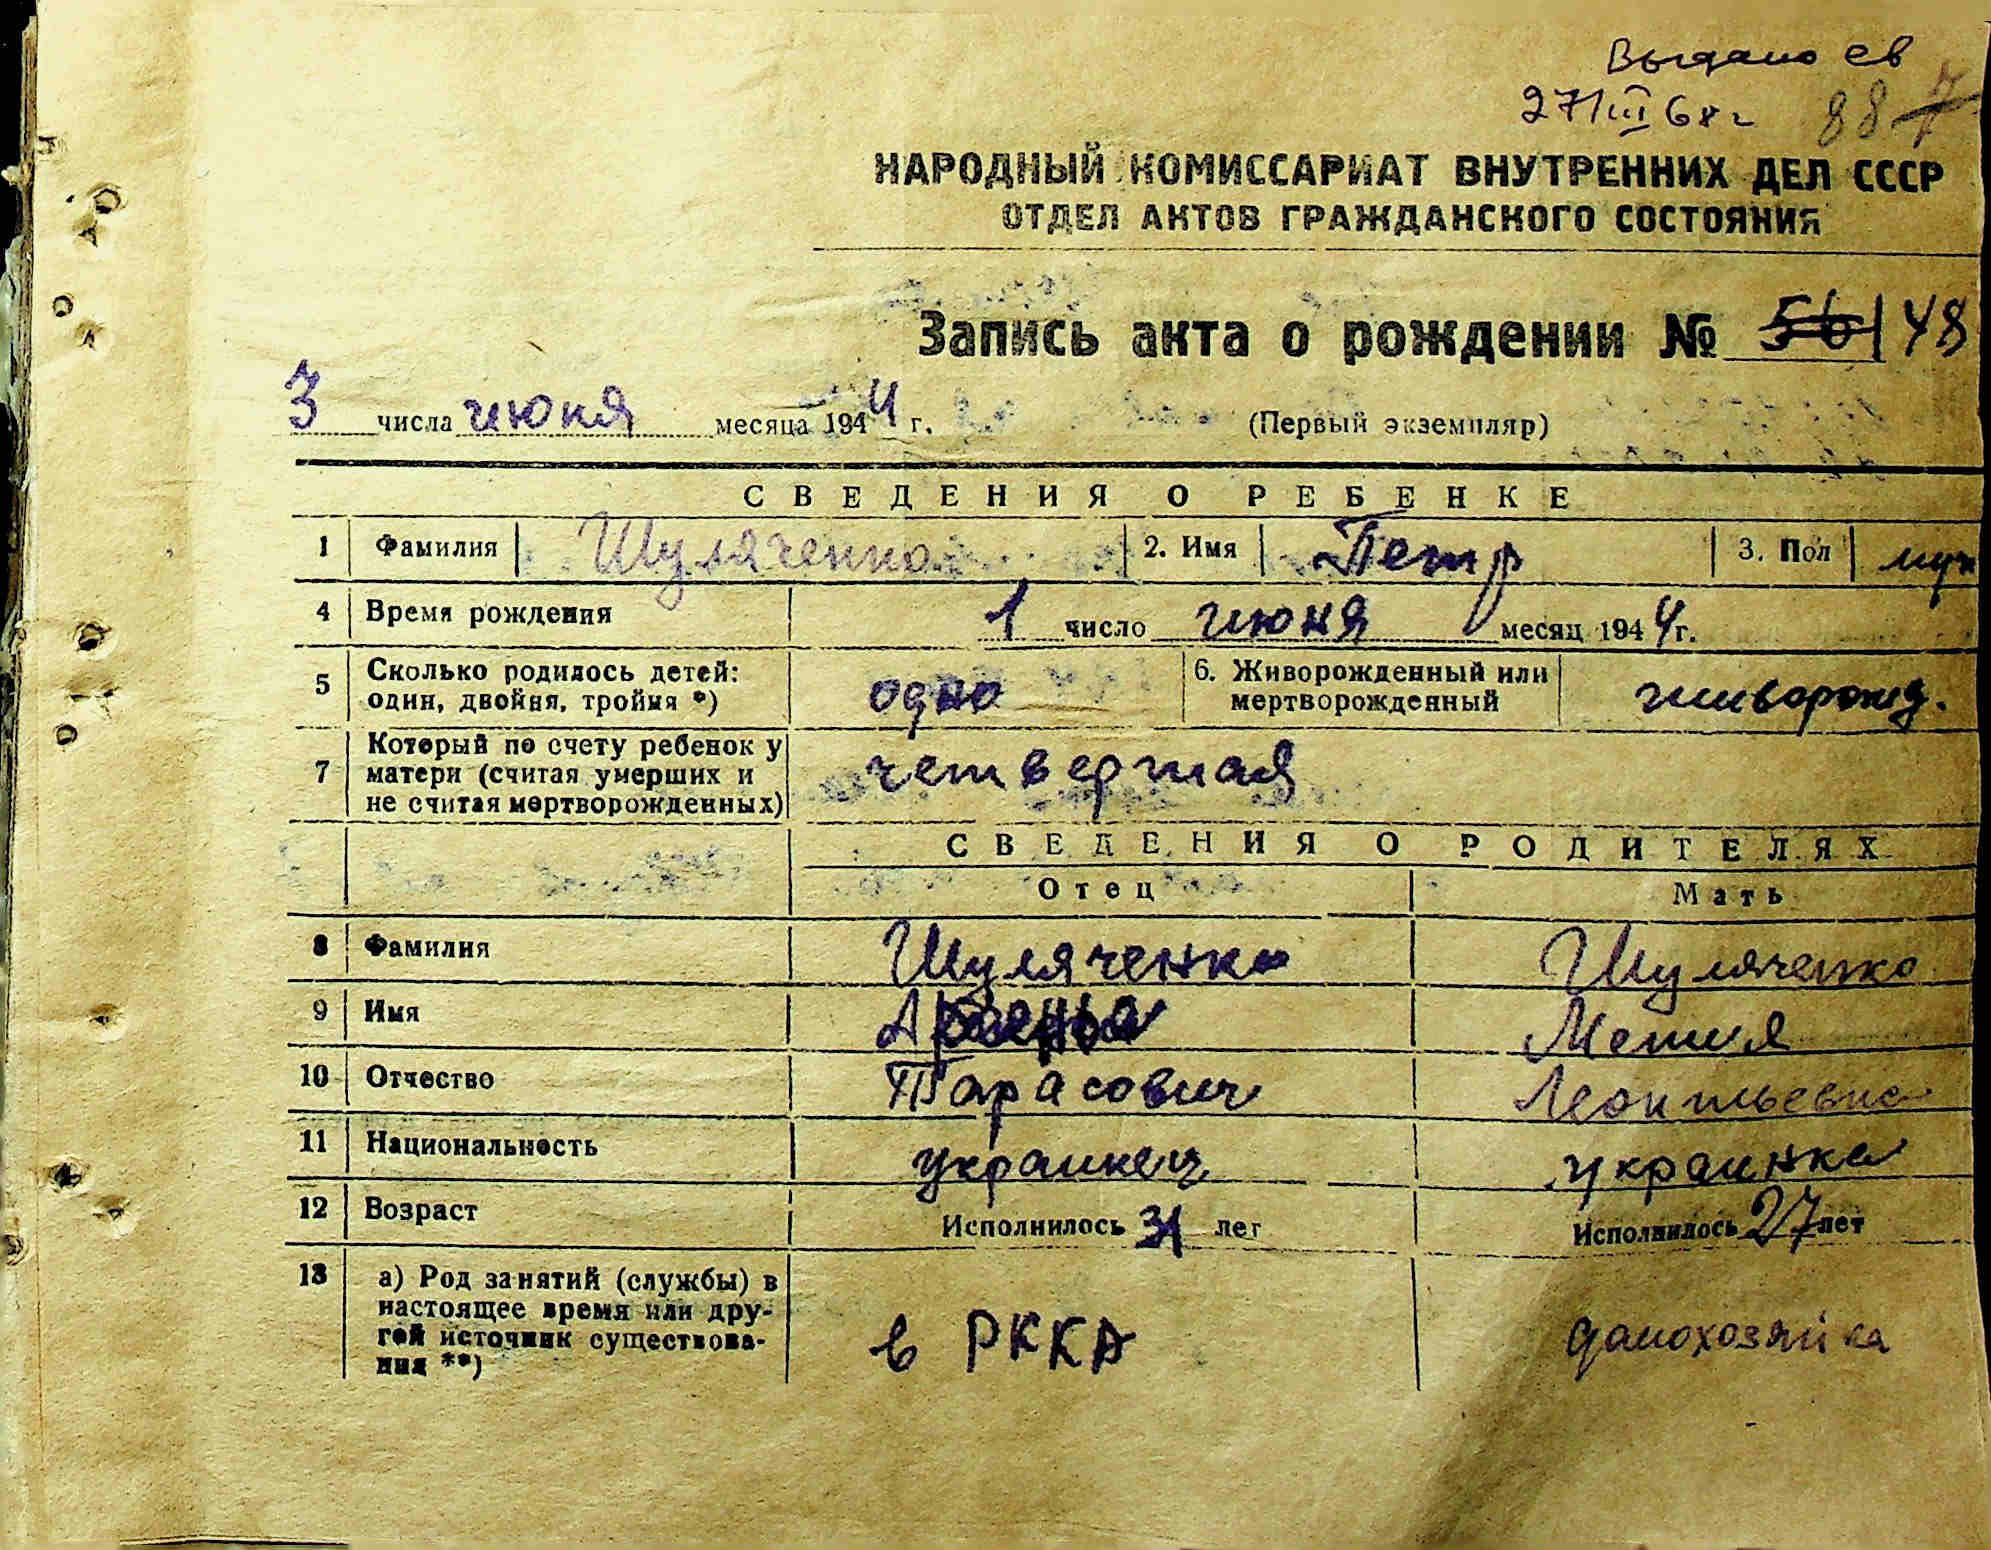 Выдано св
27/III 68 г 88
НАРОДНЫЙ КОМИССАРИАТ ВНУТРЕННИХ ДЕЛ СССР
ОТДЕЛ АКТОВ ГРАЖДАНСКОГО СОСТОЯНИЯ
Запись акта о рождении № 56 | 48
3 числа июня месяца 1944 г. (Первый экземпляр)
СВЕДЕНИЯ О РЕБЕНКЕ
1 Фамилия Шуляченко 2. Имя Петр 3. Пол муж
4 Время рождения 1 число июня месяц 1944 г.
5 Сколько родилось детей: один, двойня, тройня *) одно 6. Живорожденный или мертворожденный живорожд.
7 Который по счету ребенок у матери (считая умерших и не считая мертворожденных) четвертая
СВЕДЕНИЯ О РОДИТЕЛЯХ
Отец Мать
8 Фамилия Шуляченко Шуляченко
9 Имя
10 Отчество Тарасович Леонтьевна
11 Национальность украинец украинка
12 Возраст Исполнилось 31 лет Исполнилось 27 лет
13 а) Род занятий (службы) в настоящее время или другой источник существования **) в РККА домохозяйка